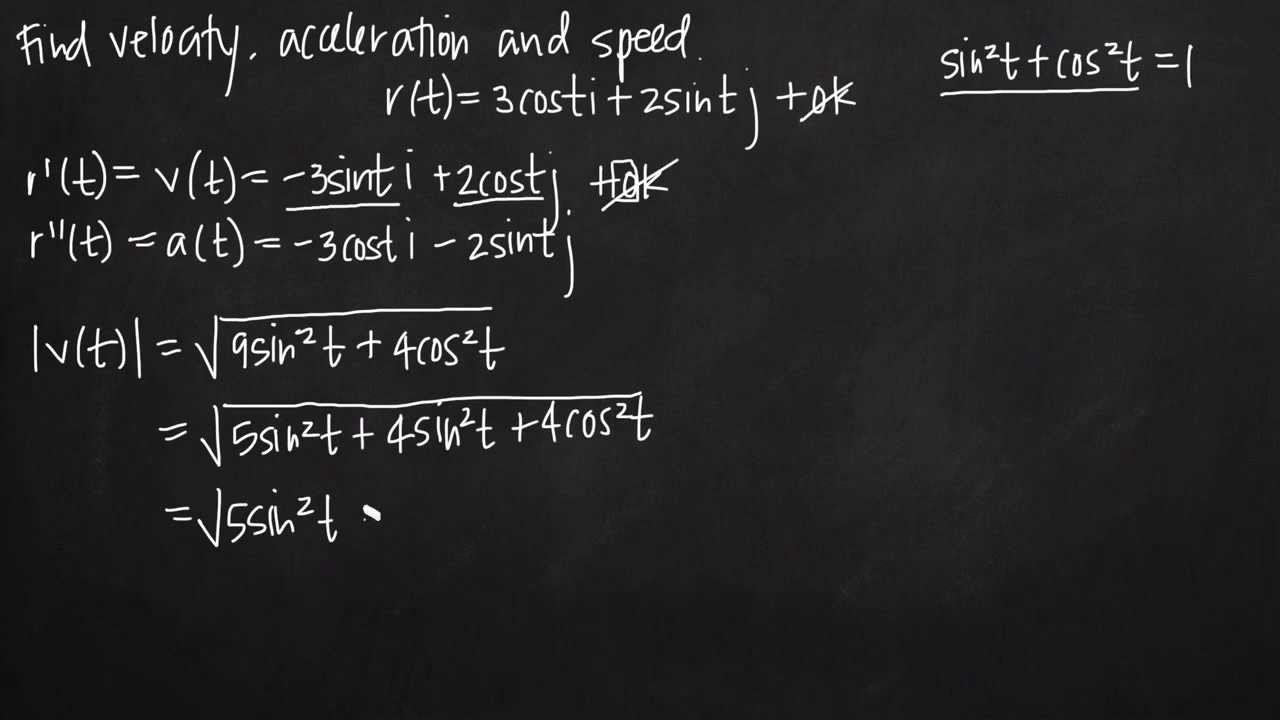 Find velocity, acceleration and speed.
sin²t + cos²t = 1
r(t) = 3costi + 2sintj + 0k
r'(t) = v(t) = -3sinti + 2costj + 0k
r"(t) = a(t) = -3costi - 2sintj
|v(t)| = √9sin²t + 4cos²t
= √5sin²t + 4sin²t + 4cos²t
= √5sin²t